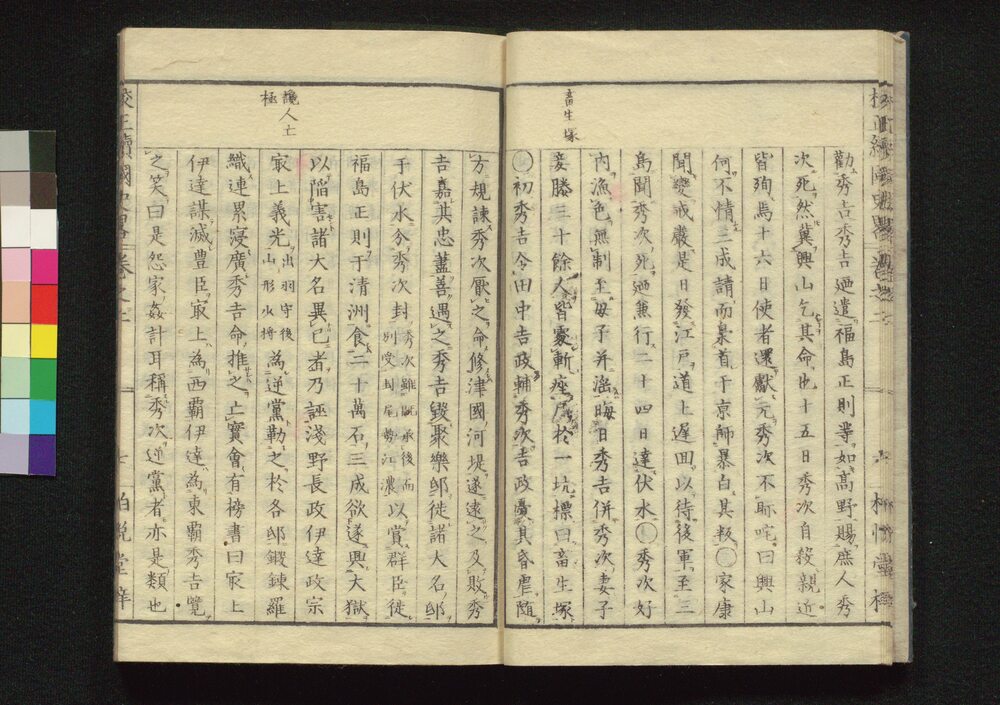 畜生塚
勸秀吉秀吉廼遣福島正則等如高野賜庶人秀
次死然冀興山乞其命也十五日秀次自殺親近
皆殉焉十六日使者還獻元秀次不聎咤曰興山
何不情三成請而梟首于京師暴白其叛〇家康
聞變戒嚴是日發江戸道上遲回以待後軍至三
島聞秀次死廼兼行二十四日達伏水〇秀次好
內漁色無制至母子并滛晦日秀吉併秀次妻子
妾媵三十餘人皆處斬座尸於一坑標曰畜生塚
〇初秀吉令田中吉政輔秀次吉政憂其昏虐隨
讒人亡
極
方規諫秀次厭之命修津國河堤遂遠之及敗秀
吉嘉其忠藎善遇之秀吉毀聚樂邸徙諸大名邸
于伏水分秀次封秀次雖既承後而別受封尾勢江濃以賞群臣徙
福島正則于清洲食二十萬石三成欲遂興大獄
以陷害諸大名異已者乃誣淺野長政伊達政宗
㝡上義光出羽守後山形水將為逆黨勒之於各邸鍛鍊羅
織連累寖廣秀吉命推之亡實會有榜書曰㝡上
伊達謀滅豊臣㝡上為西霸伊達為東霸秀吉覽
之笑曰是怨家姦計耳稱秀次逆黨者亦是類也